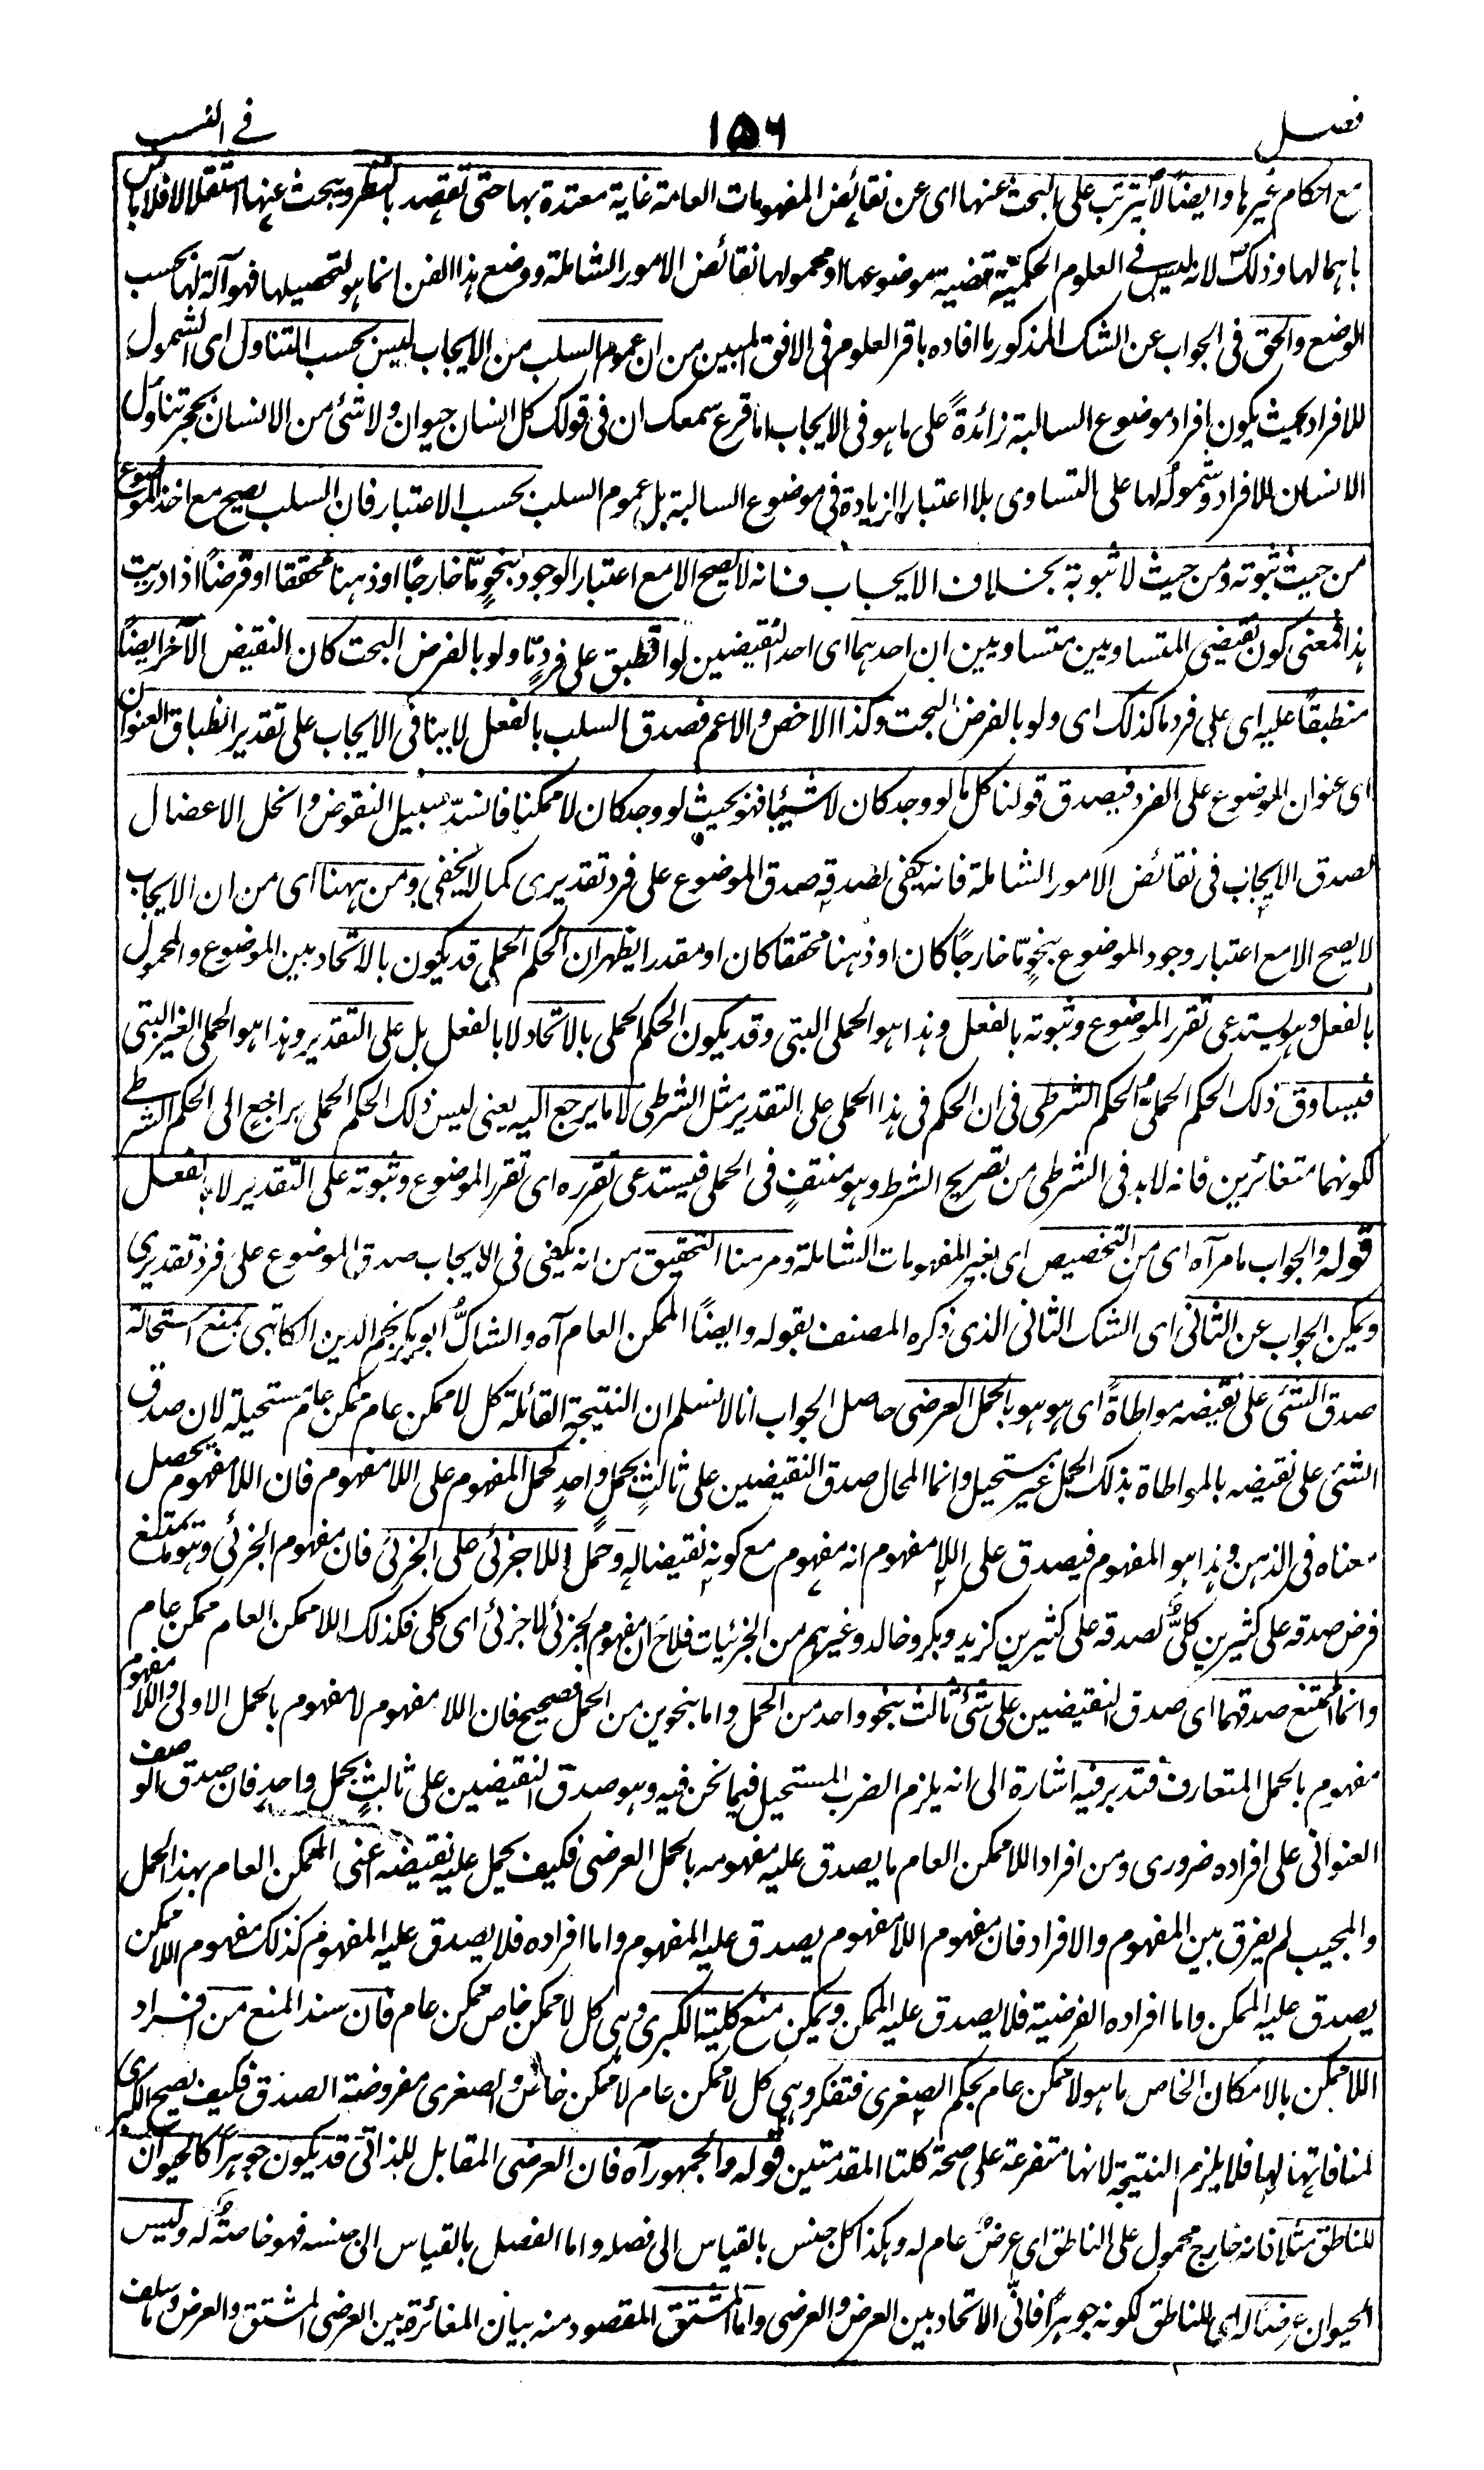 فصل ١٥٦ في النسب
مع احكام غيرها وايضاً لا يترتب على البحث عنها اى عن نقائض المفهومات العامة غاية معتدة بها حتى تقصد بالنظر ويبحث عنها استقلالا فلا باس
باهمالها وذلك لانه ليس في العلوم الحكمية قضية موضوعها او محمولها نقائض الامور الشاملة ووضع هذا الفن انما هو لتحصيلها فهو آلة لها بحسب
الوضع والحق فى الجواب عن الشك المذكور ما افاده باقر العلوم فى الافق المبين من ان عموم السلب من الايجاب ليس بحسب التناول اى الشمول
للافراد بحيث يكون افراد موضوع السالبة زائدةً على ما هو فى الايجاب اما قرع سمعك ان فى قولك كل انسان حيوان ولا شئ من الانسان بحجر تناول
الانسان للافراد وشموله لها على التساوى بلا اعتبار الزيادة فى موضوع السالبة بل عموم السلب بحسب الاعتبار فان السلب يصح مع اخذ الموضوع
من حيث ثبوته ومن حيث لا ثبوته بخلاف الايجاب فانه لا يصح الا مع اعتبار الوجود بنحوٍ مّا خارجًا او ذهنا محققا او فرضاً اذا دريت
هذا فمعنى كون نقيضى المتساويين متساويين ان احدهما اى احد النقيضين لو انطبق على فردٍ مّا ولو بالفرض البحت كان النقيض الآخر ايضاً
منطبقاً عليه اى على فرد ما كذلك اى ولو بالفرض البحت وكذا الاخص والاعم فصدق السلب بالفعل لا ينافى الايجاب على تقدير انطباق العنوان
اى عنوان الموضوع على الفرد فيصدق قولنا كل ما لو وجد كان لا شيئا فهو بحيث لو وجد كان لا ممكنا فانسدّ سبيل النقوض وانحل الاعضال
لصدق الايجاب فى نقائض الامور الشاملة فانه يكفى لصدقه صدق الموضوع على فرد تقديرى كما لا يخفى ومن ههنا اى من ان الايجاب
لا يصح الا مع اعتبار وجود الموضوع بنحوٍ مّا خارجاً كان او ذهنا محققا كان او مقدرا يظهر ان الحكم الحملى قد يكون بالاتحاد بين الموضوع والمحمول
بالفعل وهو يستدعى تقرر الموضوع وثبوته بالفعل وهذا هو الحملى البتى وقد يكون الحكم الحملى بالاتحاد لا بالفعل بل على التقدير وهذا هو الحملى الغير البتى
فيساوق ذلك الحكم الحملى الحكم الشرطى فى ان الحكم فى هذا الحملى على التقدير مثل الشرطى لا ما يرجع اليه يعنى ليس ذلك الحكم الحملى براجعٍ الى الحكم الشرطے
لكونهما متغائرين فانه لا بد فى الشرطى من تصريح الشرط وهو منتفٍ فى الحملى فيستدعى تقرره اى تقرر الموضوع وثبوته على التقدير لا بالفعل
قوله والجواب ما مر آه اى من التخصيص اى بغير المفهومات الشاملة ومر منا التحقيق من انه يكفى فى الايجاب صدق الموضوع على فرد تقديرى
ويمكن الجواب عن الثانى اى الشك الثانى الذى ذكره المصنف بقوله وايضاً الممكن العام آه والشاكُّ ابو بكر نجم الدين الكاتبى بمنع استحالة
صدق الشئ على نقيضه مواطاةً اى هو هو بالحمل العرضى حاصل الجواب انا لا نسلم ان النتيجة القائلة كل لا ممكن عام ممكن عام مستحيلة لان صدق
الشئ على نقيضه بالمواطاة بذلك الحمل غير مستحيل وانما المحال صدق النقيضين على ثالثٍ بحمل واحدٍ كحمل المفهوم على اللا مفهوم فان اللا مفهوم يحصل
معناه فى الذهن وهذا هو المفهوم فيصدق على اللا مفهوم انه مفهوم مع كونه نقيضا له وحمل اللا جزئى على الجزئى فان مفهوم الجزئى وهو ما يمتنع
فرض صدقه على كثيرين كلىٌّ لصدقه على كثيرين كزيد وبكر وخالد وغيرهم من الجزئيات فلاح ان مفهوم الجزئى لا جزئى اى كلى فكذلك اللا ممكن العام ممكن عام
وانما يمتنع صدقهما اى صدق النقيضين على شئ ثالث بنحو واحد من الحمل واما بنحوين من الحمل فصحيح فان اللا مفهوم لا مفهوم بالحمل الاولى واللا مفهوم
مفهوم بالحمل المتعارف فتدبر فيه اشارة الى انه يلزم الضرب المستحيل فيما نحن فيه وهو صدق النقيضين على ثالثٍ بحمل واحد فان صدق الوصف
العنوانى على افراده ضرورى ومن افراد اللا ممكن العام ما يصدق عليه مفهومه بالحمل العرضى فكيف يحمل عليه نقيضه اعنى الممكن العام بهذا الحمل
والمجيب لم يفرق بين المفهوم والافراد فان مفهوم اللا مفهوم يصدق عليه المفهوم واما افراده فلا يصدق عليه المفهوم كذلك مفهوم اللا ممكن
يصدق عليه الممكن واما افراده الفرضية فلا يصدق عليه الممكن ويمكن منع كلية الكبرى وهى كل لا ممكن خاص ممكن عام فان سند المنع من افراد
اللا ممكن بالامكان الخاص ما هو لا ممكن عام بحكم الصغرى فتفكر وهى كل لا ممكن عام لا ممكن خاص والصغرى مفروضة الصدق فكيف تصح الكبرى
لمنافاتها لها فلا يلزم النتيجة لانها متفرعة على صحة كلتا المقدمتين قوله والجمهور آه فان العرضى المقابل للذاتى قد يكون جوهراً كالحيوان
للناطق مثلا فانه خارج محمول على الناطق اى عرضٌ عام له وهكذا كل جنس بالقياس الى فصله واما الفصل بالقياس الى جنسه فهو خاصةٌ له وليس
الحيوان عرضاً له اى للناطق لكونه جوهراً فانّى الاتحاد بين العرض والعرضى واما المشتق المقصود منه بيان المغائرة بين العرضى المشتق والعرض وما سلف